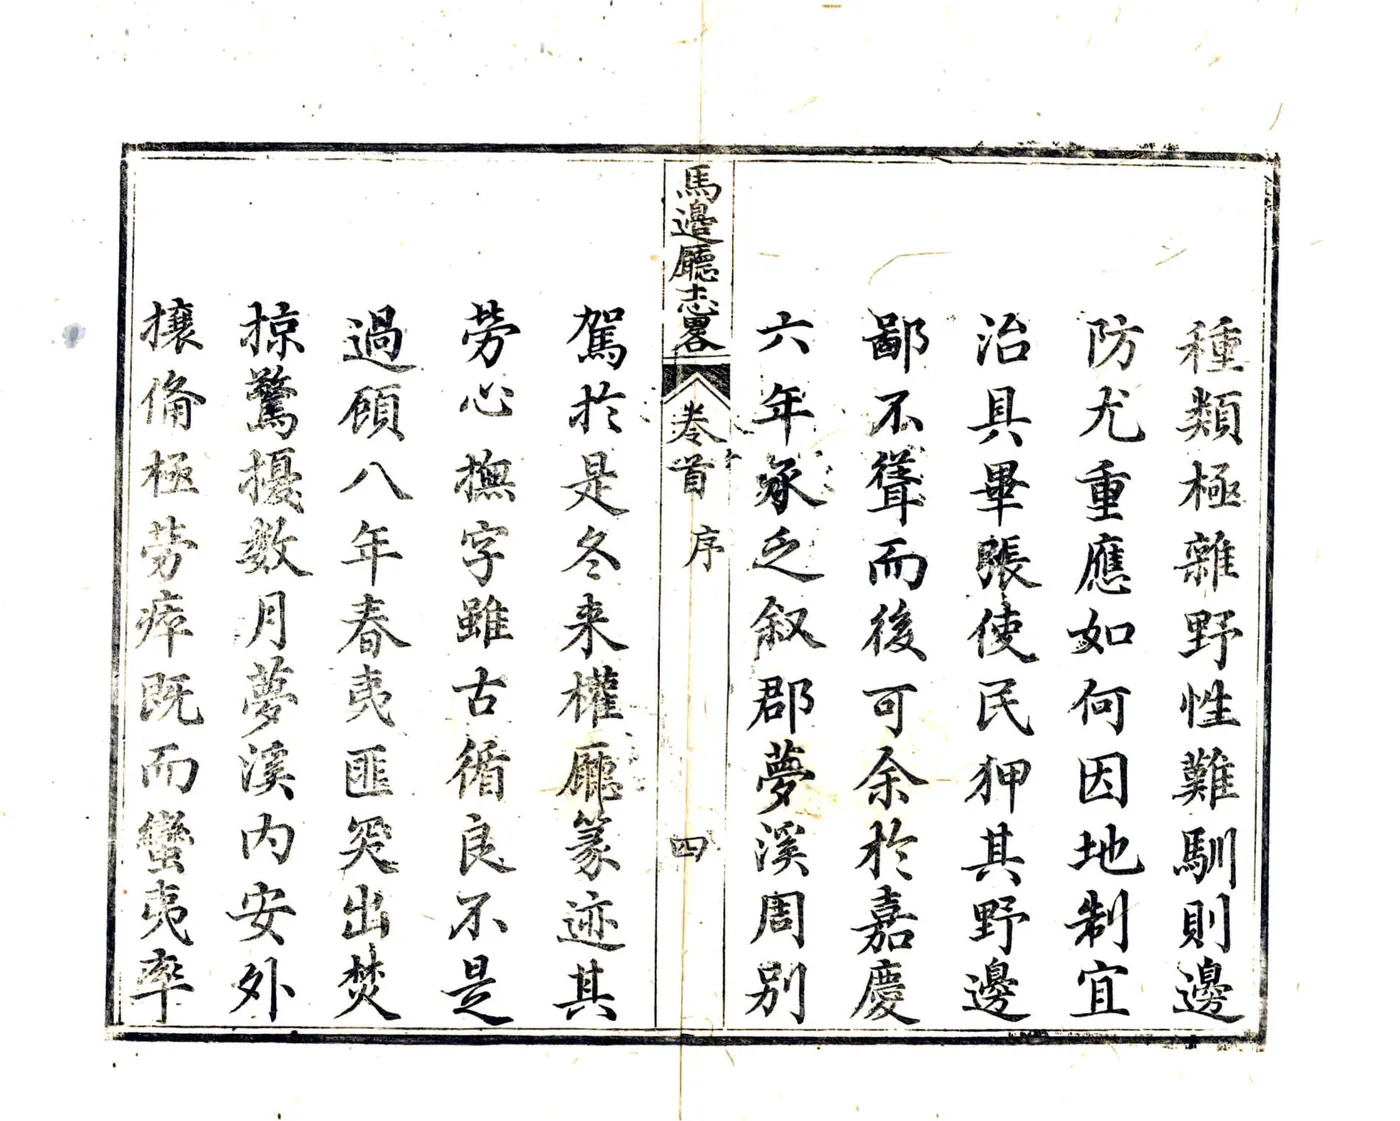 種類極雜野性難馴則邊
防尤重應如何因地制宜
治具畢張使民狎其野邊
鄙不聳而後可余於嘉慶
六年承乏叙郡夢溪周別
馬邊廳志畧
卷首
序
四
駕於是冬来權廳篆迹其
勞心撫字雖古循良不是
過顧八年春夷匪突出焚
掠驚擾数月夢溪内安外
攘俻極劳瘁既而蠻夷率